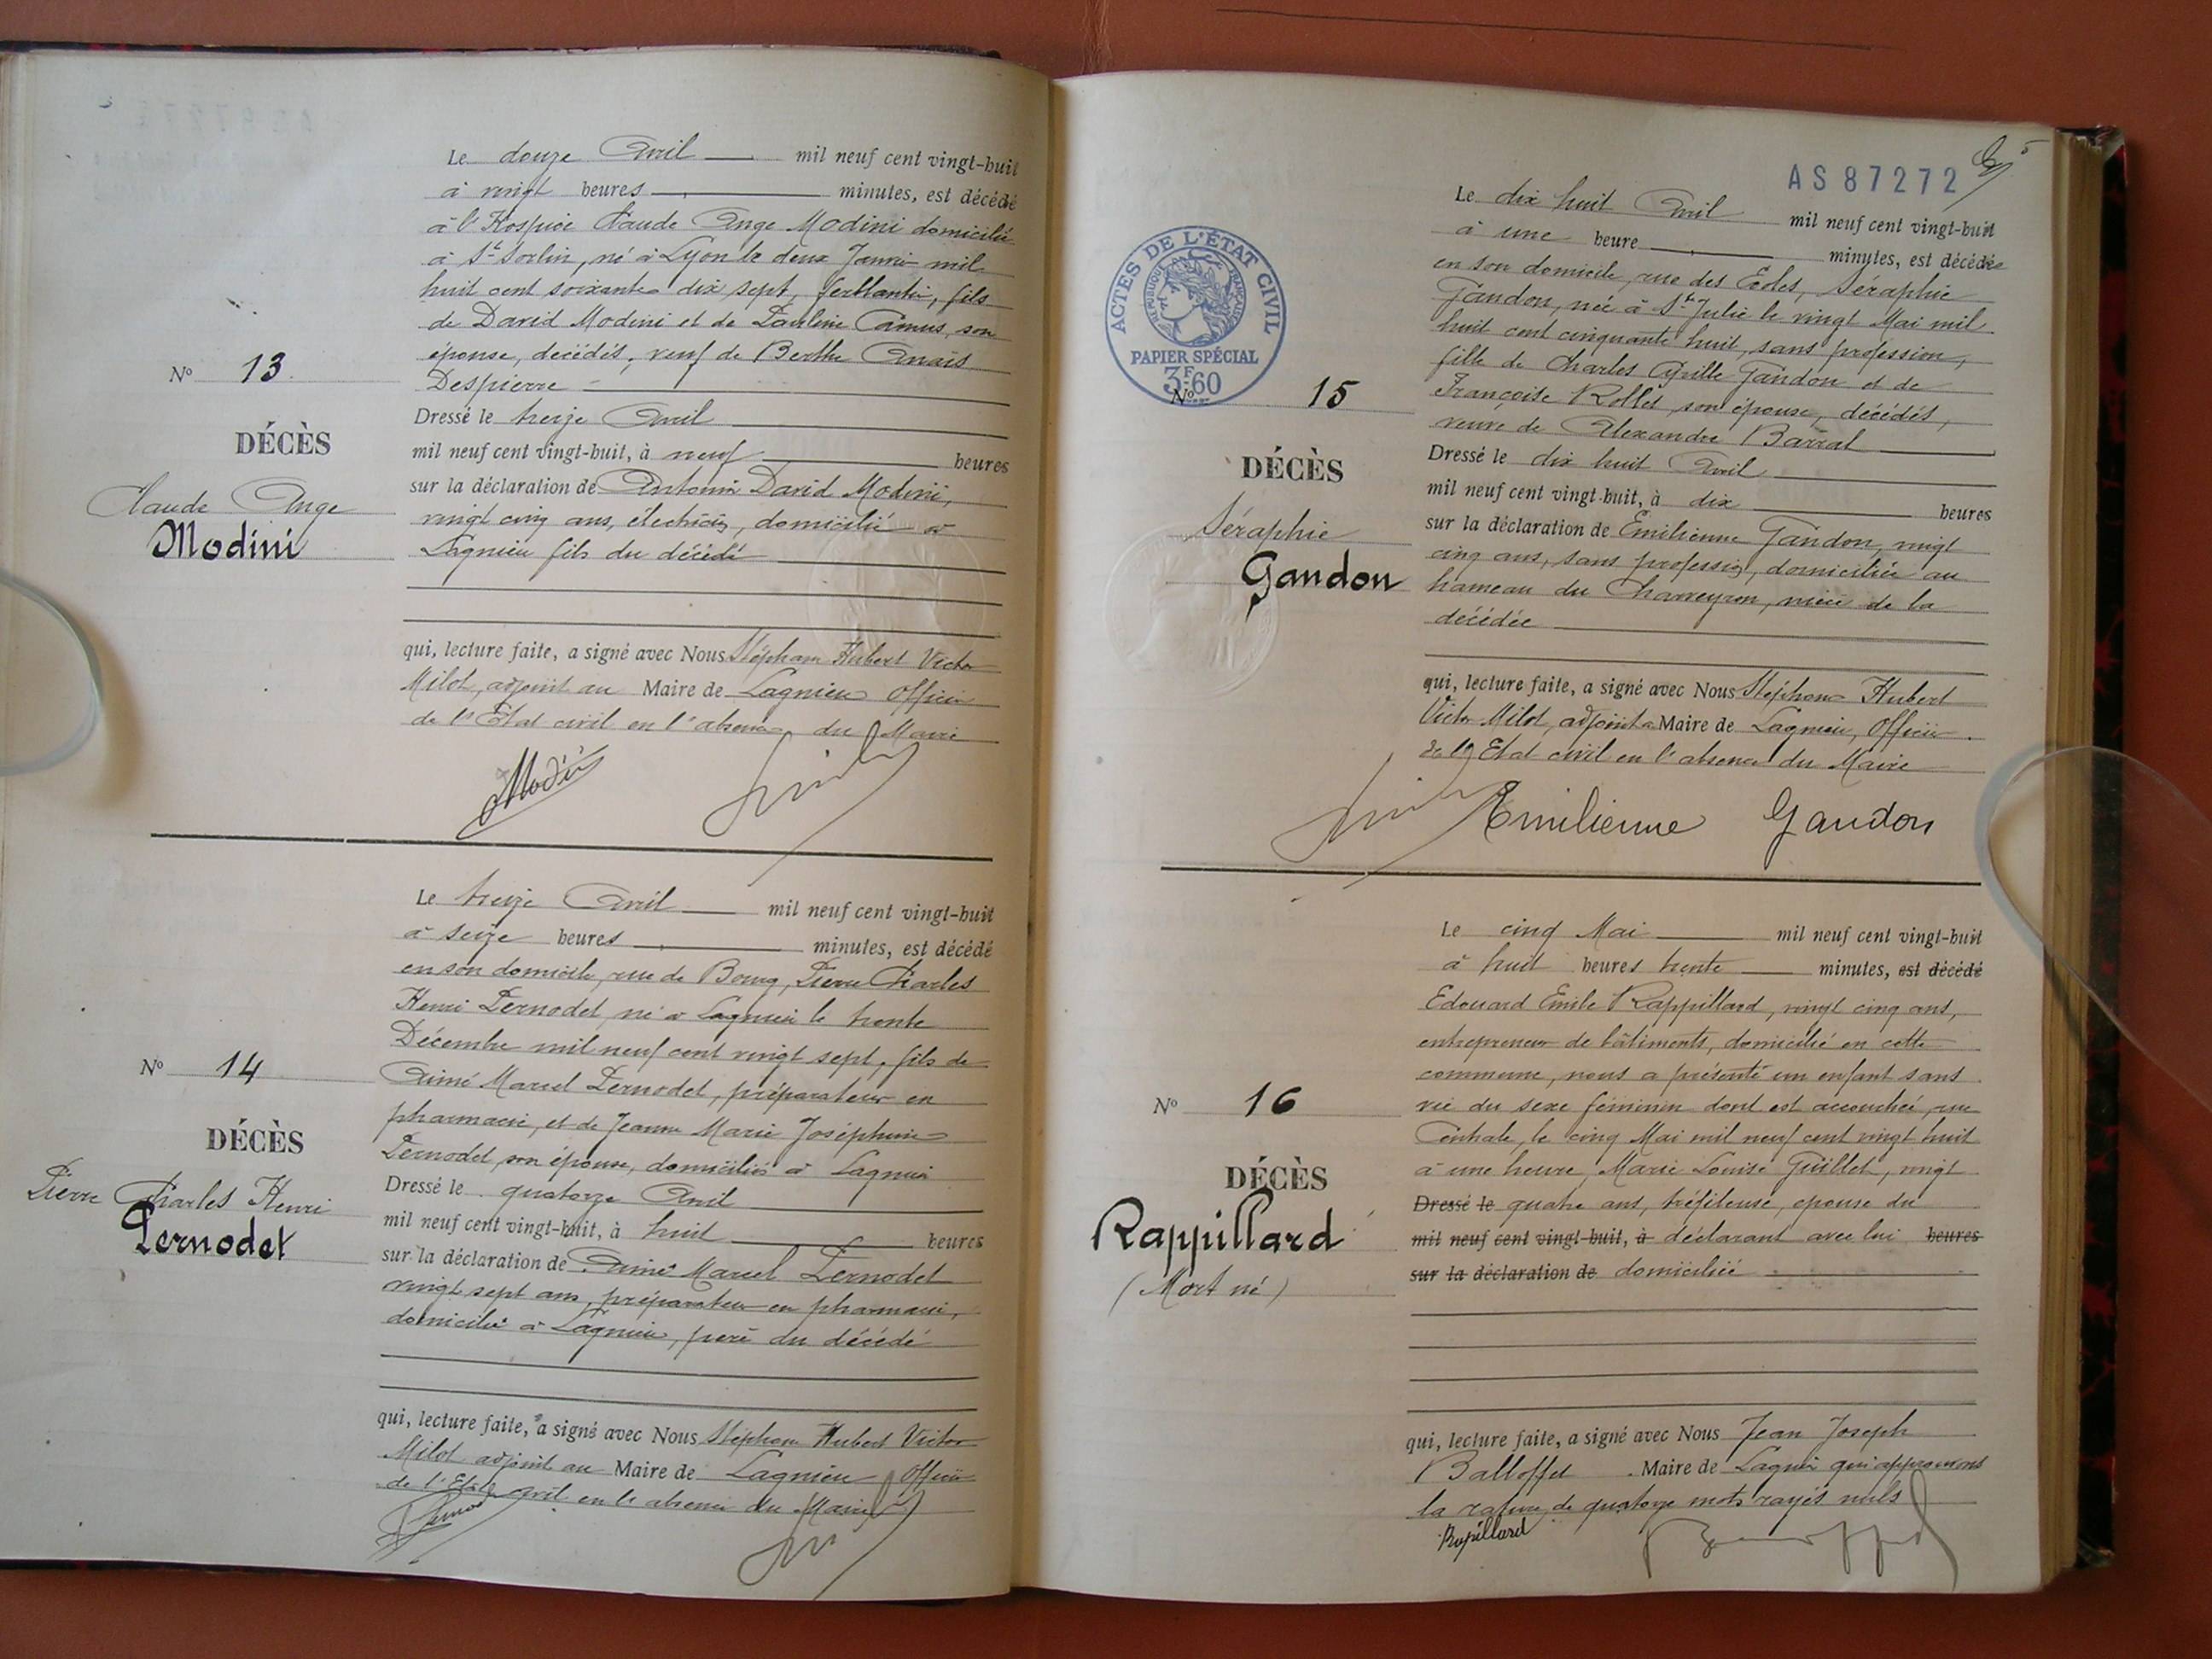 Le douze Avril mil neuf cent vingt-huit
à vingt heures minutes, est décédé
à l'Hospice Claude Ange Modini domicilié
à St Sorlin, né à Lyon le deux Janvier mil
huit cent soixante dix sept, ferblantier, fils
de David Modini et de Pauline Camus, son
épouse, décédés, veuf de Berthe Anaïs
Despierre
Nº 13
DÉCÈS
Claude Ange
Modini
Dressé le treize Avril
mil neuf cent vingt-huit, à neuf heures
sur la déclaration de Antonin David Modini,
vingt cinq ans, électricien, domicilié à
Lagnieu fils du décédé
qui, lecture faite, a signé avec Nous Stéphane Hubert Victor
Milot, adjoint au Maire de Lagnieu Officier
de l'Etat civil en l'absence du Maire
Modini
Le treize Avril mil neuf cent vingt-huit
à seize heures minutes, est décédé
en son domicile, rue de Bourg, Pierre Charles
Henri Pernodet, né à Lagnieu le trente
Décembre mil neuf cent vingt sept, fils de
Aimé Marcel Pernodet, préparateur en
pharmacie, et de Jeanne Marie Joséphine
Pernodet, son épouse, domiciliés à Lagnieu
Nº 14
DÉCÈS
Pierre Charles Henri
Pernodet
Dressé le quatorze Avril
mil neuf cent vingt-huit, à huit heures
sur la déclaration de Aimé Marcel Pernodet
vingt sept ans, préparateur en pharmacie,
domicilié à Lagnieu, père du décédé
qui, lecture faite, a signé avec Nous Stéphane Hubert Victor
Milot adjoint au Maire de Lagnieu Officier
de l'Etat civil en l'absence du Maire
AS 87272
ACTES DE L'ÉTAT CIVIL
RÉPUBLIQUE FRANÇAISE
PAPIER SPÉCIAL
3F60
Le dix huit Avril mil neuf cent vingt-huit
à une heure minutes, est décédée
en son domicile, rue des Ecoles, Séraphie
Gandon, née à Ste Julie le vingt Mai mil
huit cent cinquante huit, sans profession,
fille de Charles Cyrille Gandon et de
Françoise Rollet, son épouse, décédés,
veuve de Alexandre Barral
Nº 15
DÉCÈS
Séraphie
Gandon
Dressé le dix huit Avril
mil neuf cent vingt-huit, à dix heures
sur la déclaration de Emilienne Gandon, vingt
cinq ans, sans profession, domiciliée au
hameau du Charveyron, nièce de la
décédée
qui, lecture faite, a signé avec Nous Stéphane Hubert
Victor Milot, adjoint au Maire de Lagnieu, Officier
de l'Etat civil en l'absence du Maire
Emilienne Gandon
Le cinq Mai mil neuf cent vingt-huit
à huit heures trente minutes, est décédé
Edouard Emile Rappillard, vingt cinq ans,
entrepreneur de bâtiments, domicilié en cette
commune, nous a présenté un enfant sans
vie du sexe féminin dont est accouchée, rue
Centrale, le cinq Mai mil neuf cent vingt huit
à une heure, Marie Louise Guillet, vingt
Dressé le quatre ans, tréfileuse, épouse du
mil neuf cent vingt-huit, à déclarant avec lui heures
sur la déclaration de domiciliée
Nº 16
DÉCÈS
Rappillard
(Mort né)
qui, lecture faite, a signé avec Nous Jean Joseph
Balloffet Maire de Lagnieu qui approuvons
la rature de quatorze mots rayés nuls
Rapillard